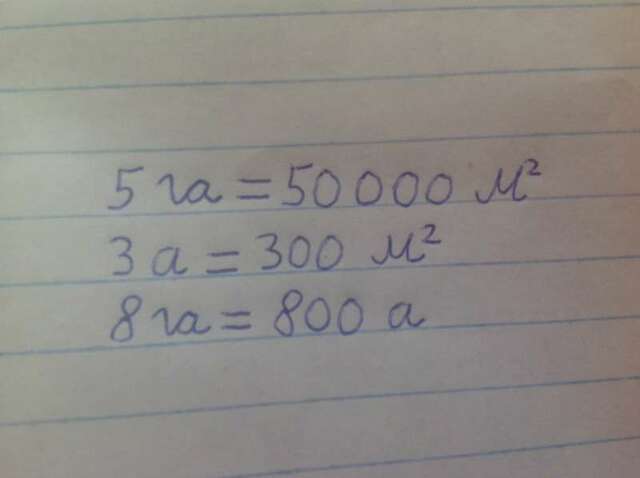 5 га = 50 000 м²
3 а = 300 м²
8 га = 800 а